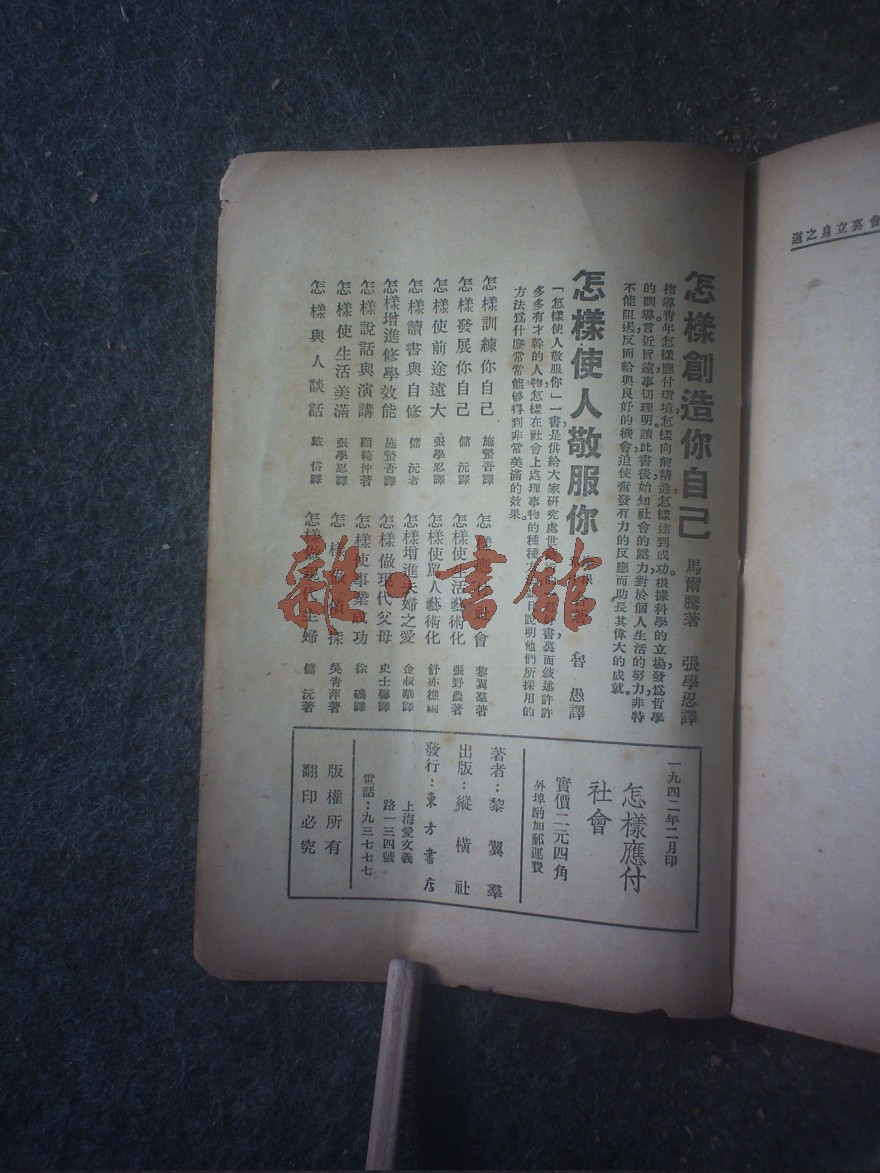 會裏立身之道
怎樣創造你自己 馬爾騰著 張學忍譯
指導青年怎樣應付環境,怎樣向前精進,怎樣達到成功。根據科學的立場,發爲哲學
的訓導,言近旨遠,事切理明。讀此書後,始知社會的壓力,對於個人生活的努力,非特
不能阻遏,反而給與良好的機會,迫使奮發有力的反應,而助長其偉大的成就。
怎樣使人敬服你 魯愚譯
「怎樣使人敬服你」一書,是供給大家研究處世
書裏面敍述許許
多多有才幹的人物,怎樣在社會上處理事物的種種方
說明他們所採用的
方法爲什麼常常能够得到非常美滿的效果。
怎樣訓練你自己 施螫吾譯
怎樣發展你自己 儲沅譯
怎樣使前途遠大 張學忍譯
怎樣讀書與自修 儲沅著
怎樣增進修學效能 施螫吾譯
怎樣說話與演講 顧綺仲著
怎樣使生活美滿 張學忍譯
怎樣與人談話
怎樣應付社會 黎翼羣著
怎樣使生活藝術化 張野農著
怎樣使罵人藝術化 舒亦樵編
怎樣增進夫婦之愛 金叔華譯
怎樣做現代父母 史士驤譯
怎樣使事業成功 徐礪譯
怎樣做偵探 吳青萍著
怎樣做現代主婦 儲沅著
一九四二年二月印
怎樣應付
社會
實價二元四角
外埠酌加郵運費
著者:黎翼羣
出版:縱橫社
發行:東方書店
上海愛文義
路一三四號
電話:九三七七七
版權所有
翻印必究
雜·書館